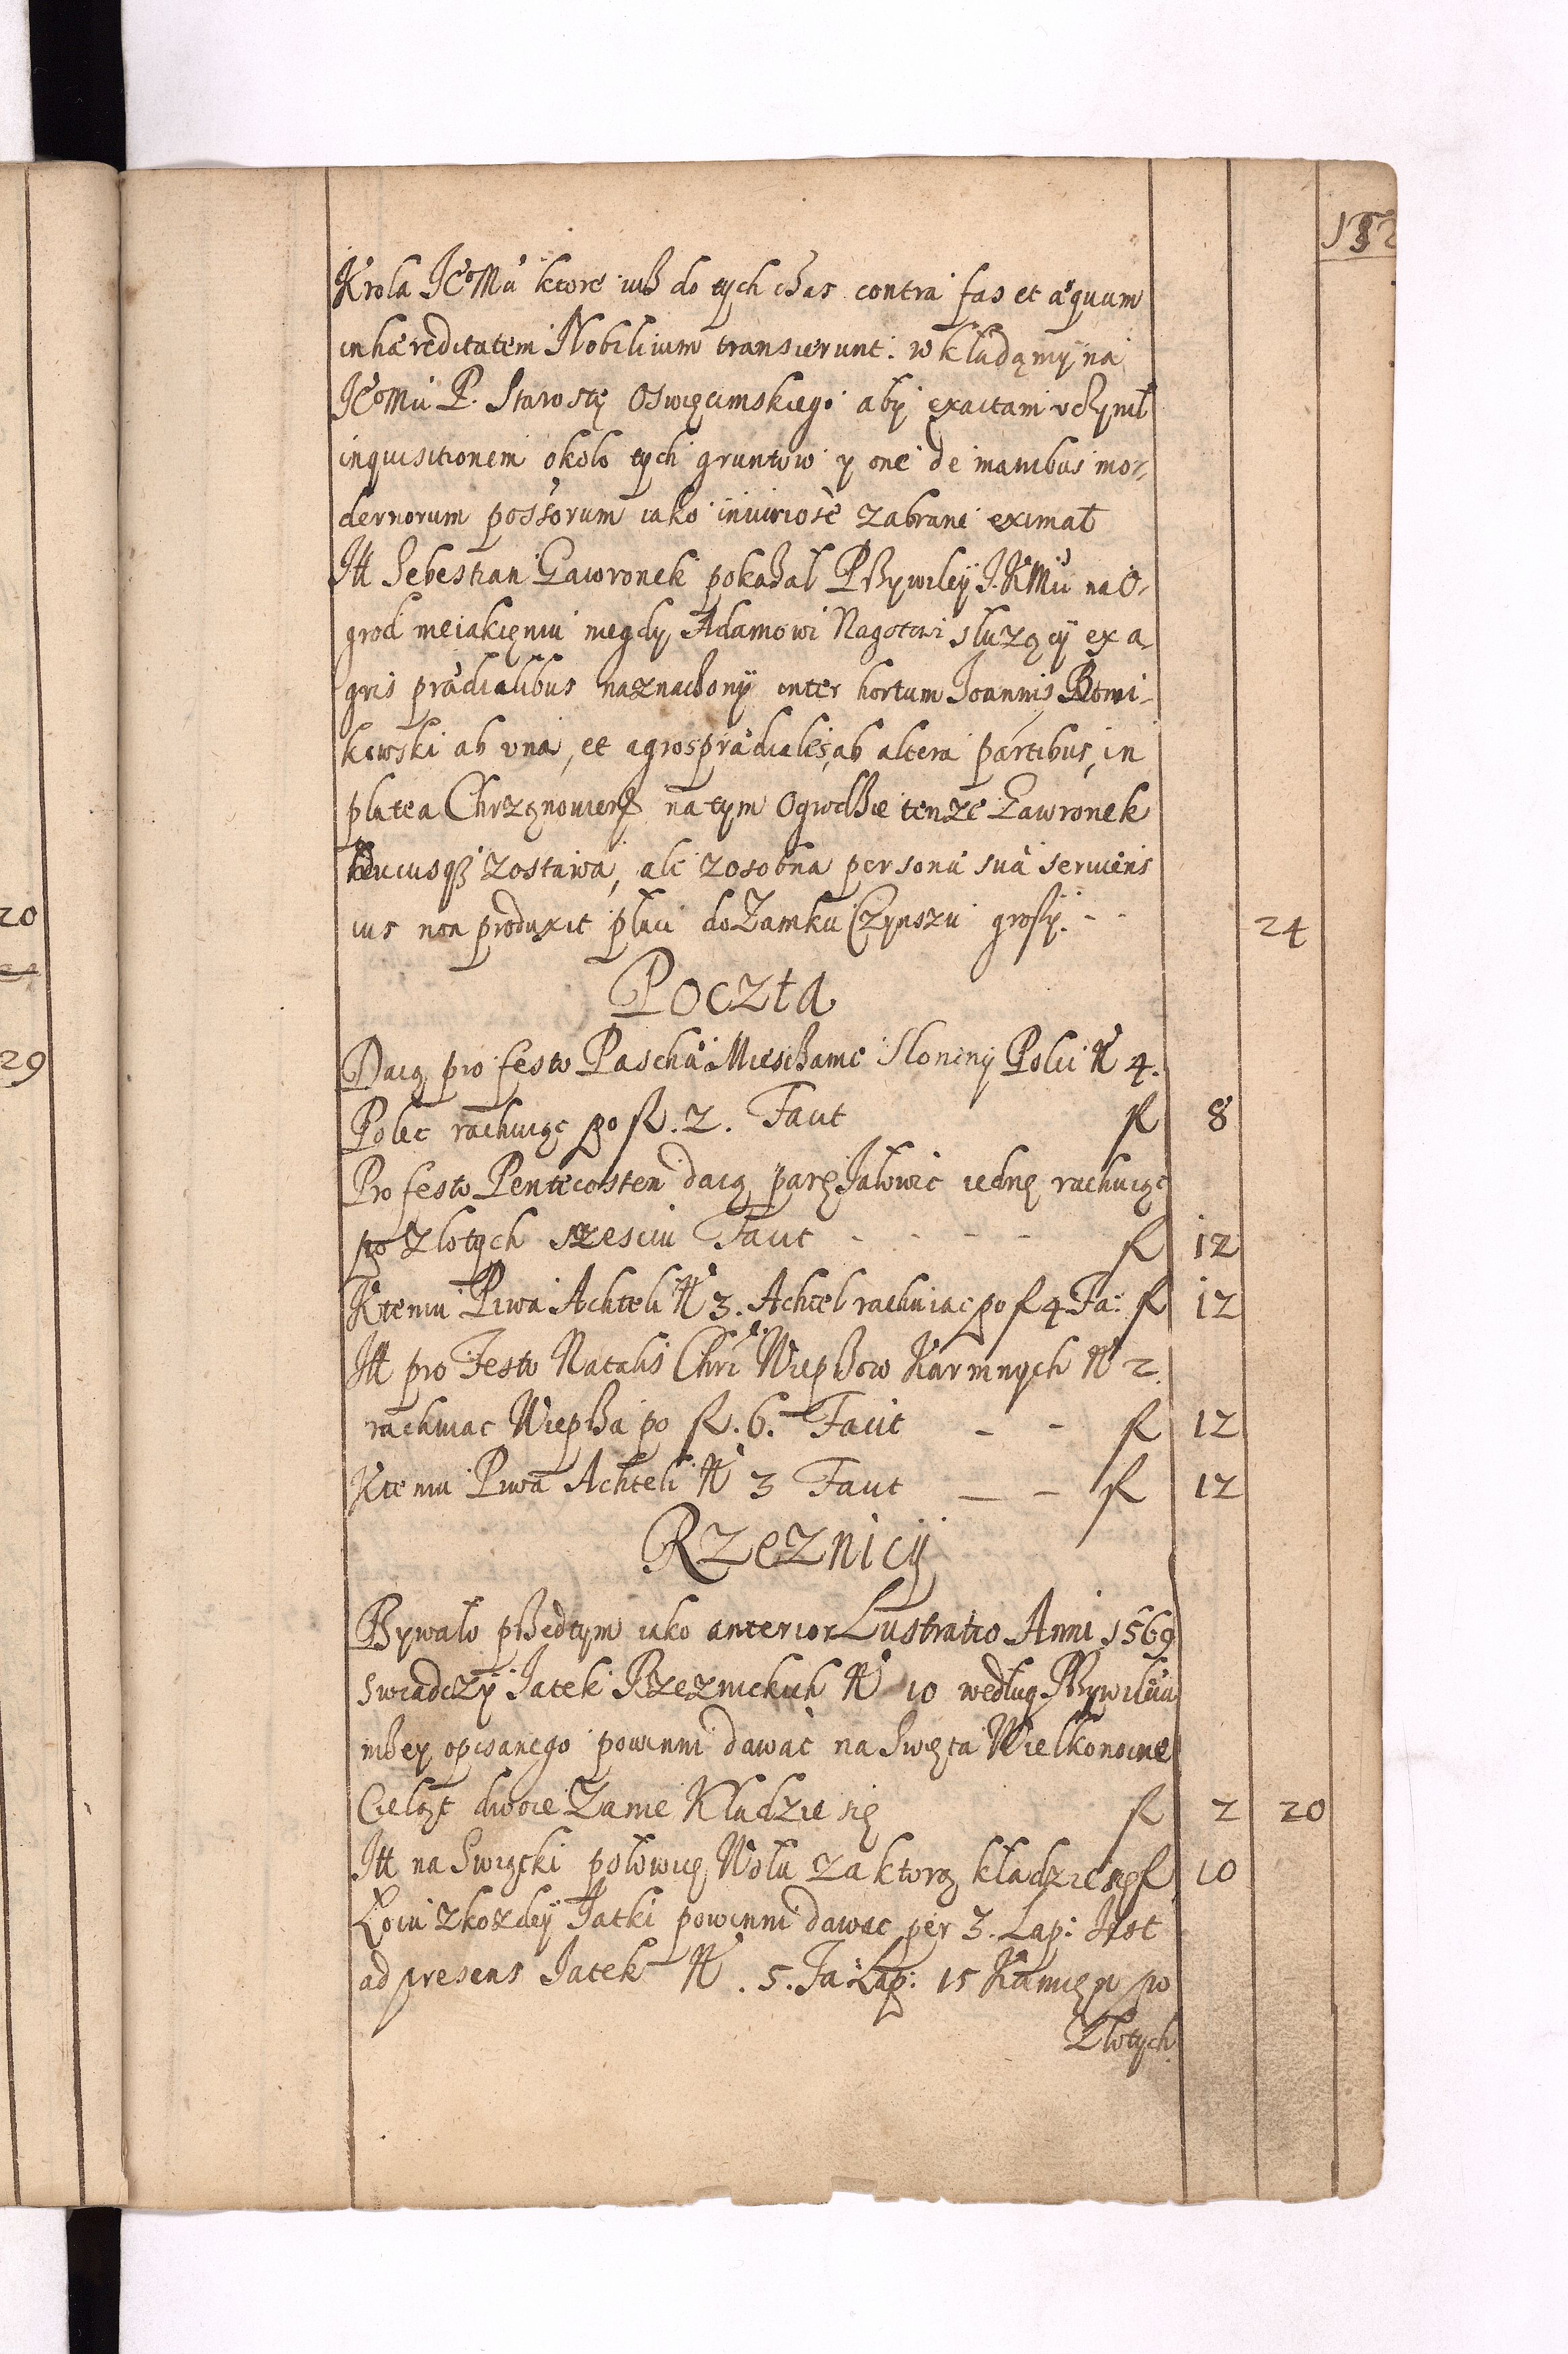 152
Krola JeoMći ktore iuß do tych cżas contra fas et æquum
in hæreditatem Nobilium transierunt: wkładąmy na
JeoMći P. Starostę Oswięcimskiego aby exactam vcżynił
inquisitionem około tych gruntow y one de manibus mo-
dernorum possorum iako iniuriosè zabrane eximał
Itt Sebestian Gawronek pokazał Przywiley J.KMći na O-
grod nieiakięmu niegdy Adamowi Nagotowi służący ex a-
gris prædialibus naznacżony inter hortum Joannis Romi-
kowski ab vna, et agros prædiales, ab altera partibus, in
platea Chrząnowień na tym Ogrodżie tenże Gawronek
hucusqz zostawa, ale zosobna personæ suæ seruiens
ius non produxit płaci do Zamku Czynszu groszy. - - 24
Poczta
Daią pro festo Paschæ Miescżanie Słoniny Polci N 4.
Polec rachuiąc po fl. 2. Facit fl 8
Pro festo Pentecosten daią parę Jałowic iednę rachuiąc
po złotych szesciu Facit - - - - fl 12
Ktemu Piwa Achteli N 3. Achtel rachuiac po f 4. Fa: fl 12
Itt pro Festo Natalis Chri Wieprzow Karmnych N 2.
rachuiac Wieprza po fl. 6. Facit - - fl 12
Ktemu Piwa Achteli N 3 Facit - - fl 12
Rzeznicy
Bywało przedtym iako anterior Lustratio Anni 1569
swiadczy Jatek Rzeznickich N 10 według Przywileiu
nizey opisanego powinni dawać na Swięta Wielkonocne
Cieląt dwoie Za nie Kładzie się fl 2 20
Itt na Swiątki połowicę Wołu za ktorą kładzie się fl 10
Łoiu z kozdey Jatki powinni dawac per 3. Lap: Jest
ad presens Jatek N. 5. Fa: Lap: 15 Kamięn po
Złotych
20
29